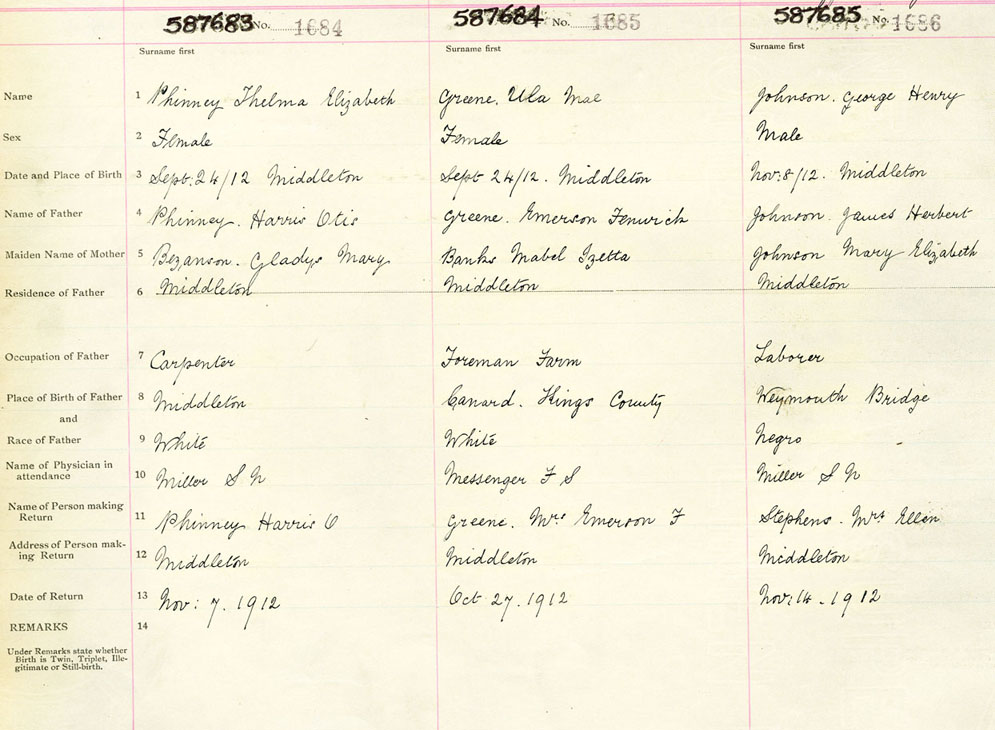 587683 No. 1684 587684 No. 1685 587685 No. 1686
Surname first Surname first Surname first
Name 1 Phinney Thelma Elizabeth Greene. Ula Mae Johnson. George Henry
Sex 2 Female Female Male
Date and Place of Birth 3 Sept. 24/12 Middleton Sept 24/12. Middleton Nov. 8/12. Middleton
Name of Father 4 Phinney. Harris Otis Greene. Emerson Fenwick Johnson. James Herbert
Maiden Name of Mother 5 Bezanson. Gladys Mary Banks Mabel Izetta Johnson Mary Elizabeth
Residence of Father 6 Middleton Middleton Middleton
Occupation of Father 7 Carpenter Foreman Farm Laborer
Place of Birth of Father 8 Middleton Canard. Kings County Weymouth Bridge
and
Race of Father 9 White White Negro
Name of Physician in
attendance 10 Miller S N Messenger F S Miller S N
Name of Person making
Return 11 Phinney Harris O Greene. Mrs Emerson F Stephens. Mrs Ellen
Address of Person mak-
ing Return 12 Middleton Middleton Middleton
Date of Return 13 Nov: 7. 1912 Oct 27. 1912 Nov: 14. 1912
REMARKS 14
Under Remarks state whether
Birth is Twin, Triplet, Ille-
gitimate or Still-birth.